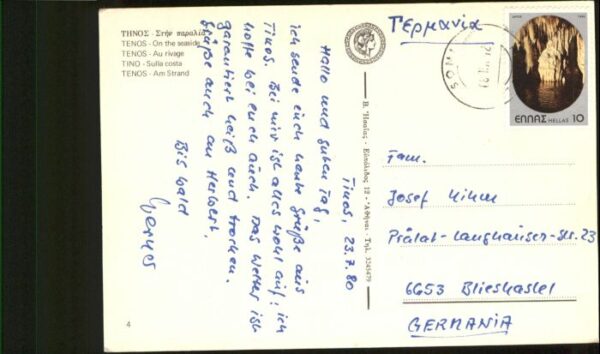 ΤΗΝΟΣ - Στήν παραλία
TENOS - On the seaside
TENOS - Au rivage
TINO - Sulla costa
TENOS - Am Strand
Tinos, 23.7.80
Hallo und guten Tag,
ich sende euch heute Grüße aus
Tinos. Bei mir ist alles wohl auf! ich
hoffe bei euch auch. Das Wetter ist
garantiert heiß und trocken.
Grüße auch an Herbert.
Bis bald
Werner
4
Β. Ἠσαΐας - Εὐπόλιδος 12 - Ἀθῆναι - Τηλ. 3243479
Γερμανία
ΕΛΛΑΣ HELLAS 10
Fam.
Josef
Prälat-Langhauser-Str. 23
6653 Blieskastel
GERMANIA